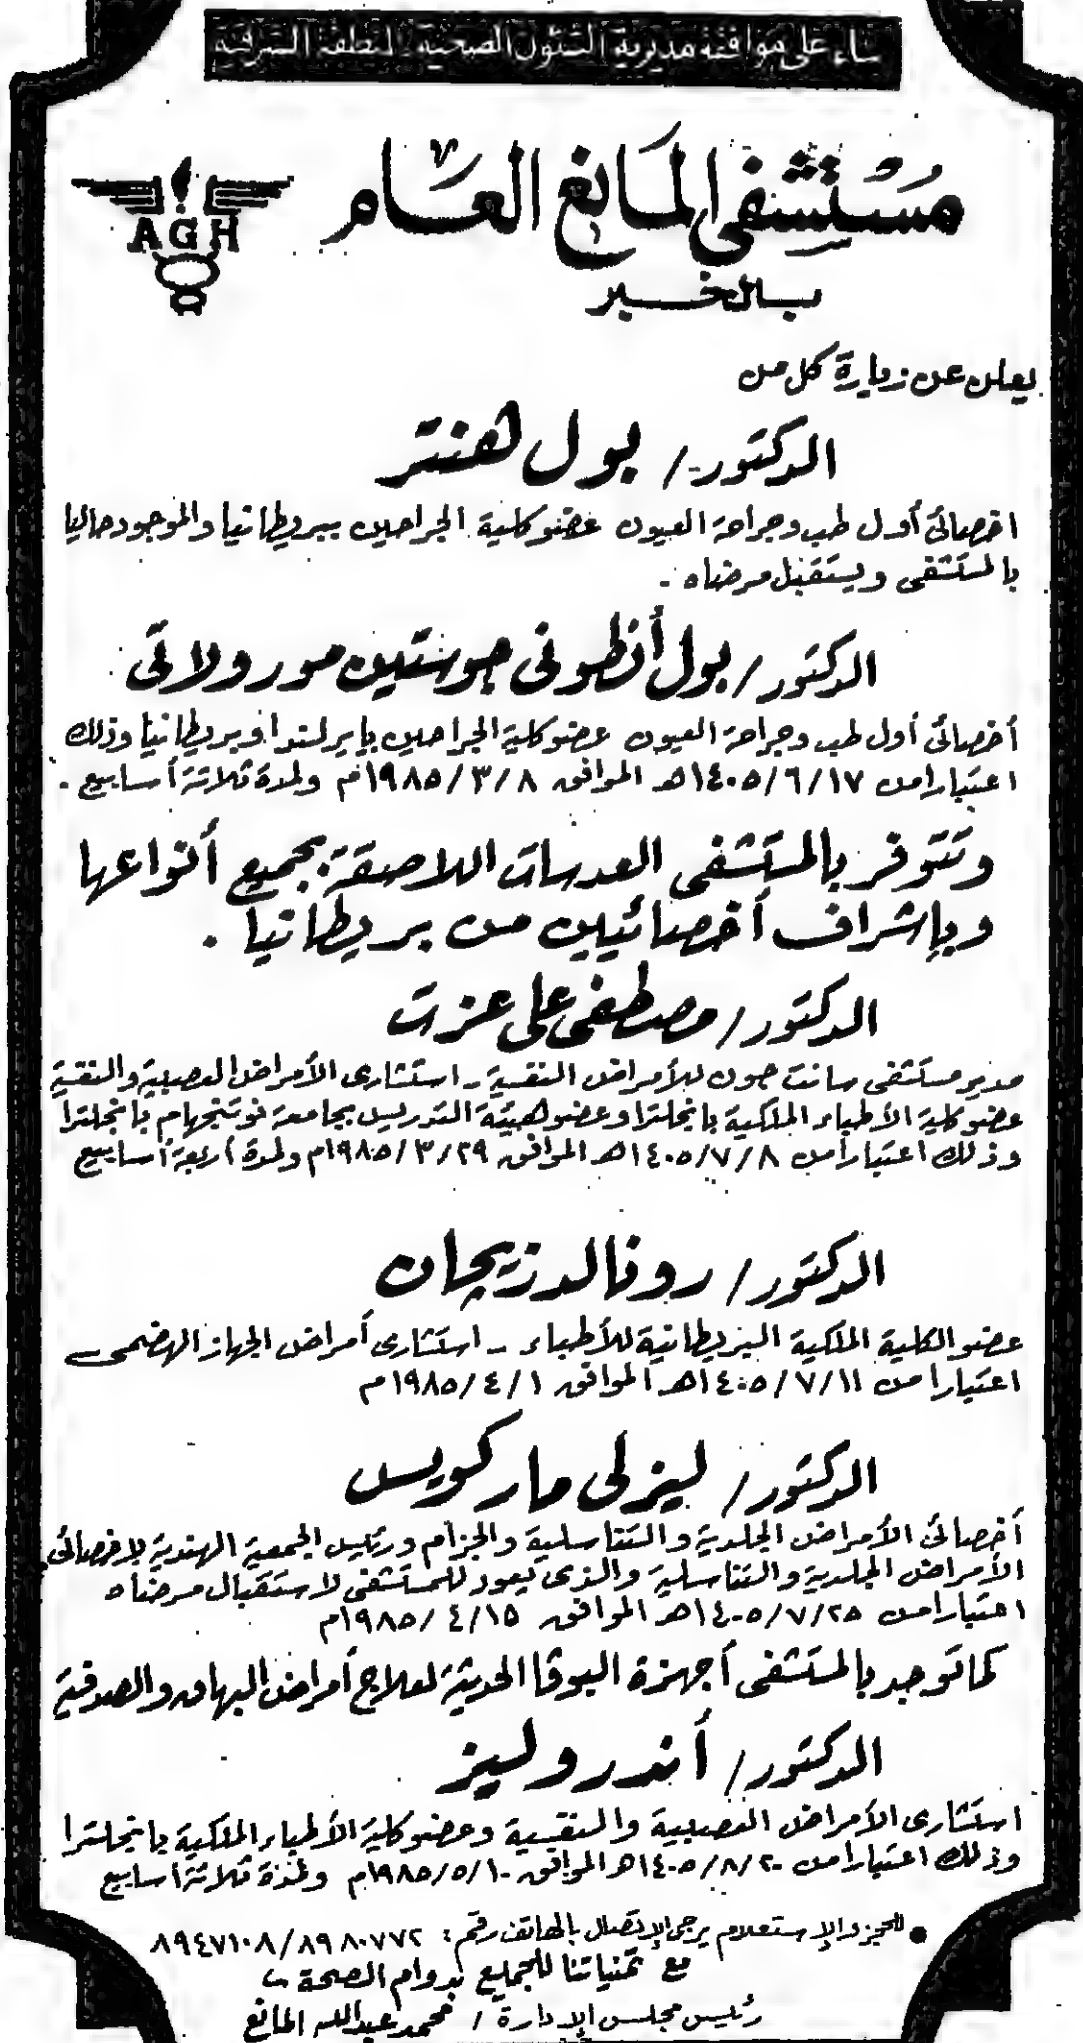 بناء على موافقة مديرية الشئون الصحية بالمنطقة الشرقية
مستشفى المانع العام
AGH
بالخبر
يعلن عن زيارة كل من
الدكتور / بول هنتر
اخصائى أول طب وجراحة العيون عضو كلية الجراحين ببريطانيا والموجود حاليا
بالمستشفى ويستقبل مرضاه .
الدكتور / بول أنطونى جوستين مورولاتى
أخصائى أول طب وجراحة العيون عضو كلية الجراحين بإيرلندا وبريطانيا وذلك
اعتبارا من ١٤٠٥/٦/١٧هـ الموافق ١٩٨٥/٣/٨م ولمدة ثلاثة أسابيع .
وتتوفر بالمستشفى العدسات اللاصقة بجميع أنواعها
وبإشراف أخصائيين من بريطانيا .
الدكتور / مصطفى على عزت
مدير مستشفى سانت جون للأمراض النفسية - استشارى الأمراض العصبية والنفسية
عضو كلية الأطباء الملكية بانجلترا وعضو هيئة التدريس بجامعة نوتنجهام بانجلترا
وذلك اعتبارا من ١٤٠٥/٧/٨هـ الموافق ١٩٨٥/٣/٢٩م ولمدة أربعة أسابيع
الدكتور / رونالد زيجان
عضو الكلية الملكية البريطانية للأطباء - استشارى أمراض الجهاز الهضمى
اعتبارا من ١٤٠٥/٧/١١هـ الموافق ١٩٨٥/٤/١م
الدكتور / ليزلى ماركويس
أخصائى الأمراض الجلدية والتناسلية والجزام ورئيس الجمعية الهندية لاخصائى
الأمراض الجلدية والتناسلية والذى يعود للمستشفى لاستقبال مرضاه
اعتبارا من ١٤٠٥/٧/٢٥هـ الموافق ١٩٨٥/٤/١٥م
كما توجد بالمستشفى أجهزة البوفا الحديثة لعلاج أمراض البهاق والصدفية
الدكتور / أندرو ليز
استشارى الأمراض العصبية والنفسية وعضو كلية الأطباء الملكية بانجلترا
وذلك اعتبارا من ١٤٠٥/٨/٢٠هـ الموافق ١٩٨٥/٥/١٠م ولمدة ثلاثة أسابيع
● للحجز والإستعلام يرجى الإتصال بالهاتف رقم : ٨٩٨٠٧٧٢/٨٩٤٧١٠٨
مع تمنياتنا للجميع بدوام الصحة ،،
رئيس مجلس الإدارة / محمد عبدالله المانع